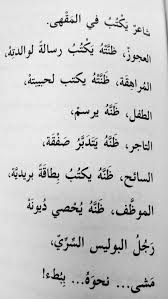 شاعرٌ يَكْتُبُ في المَقْهى.
العجوزُ، ظَنَّتْهُ يَكتُبُ رسالةً لوالدتِهِ،
المُراهِقَة، ظَنَّتْهُ يكتب لحبيبتِهِ،
الطفل، ظَنَّهُ يرسمُ،
التاجر، ظَنَّهُ يَتَدَبَّرُ صَفْقَة،
السائح، ظَنَّهُ يكتُبُ بِطاقَةً بريديَّة،
الموظَّف، ظَنَّهُ يُحْصي دُيونَهُ
رَجُلُ البوليس السِّرِّي،
مَشى... نحوَهُ... بِبُطء!